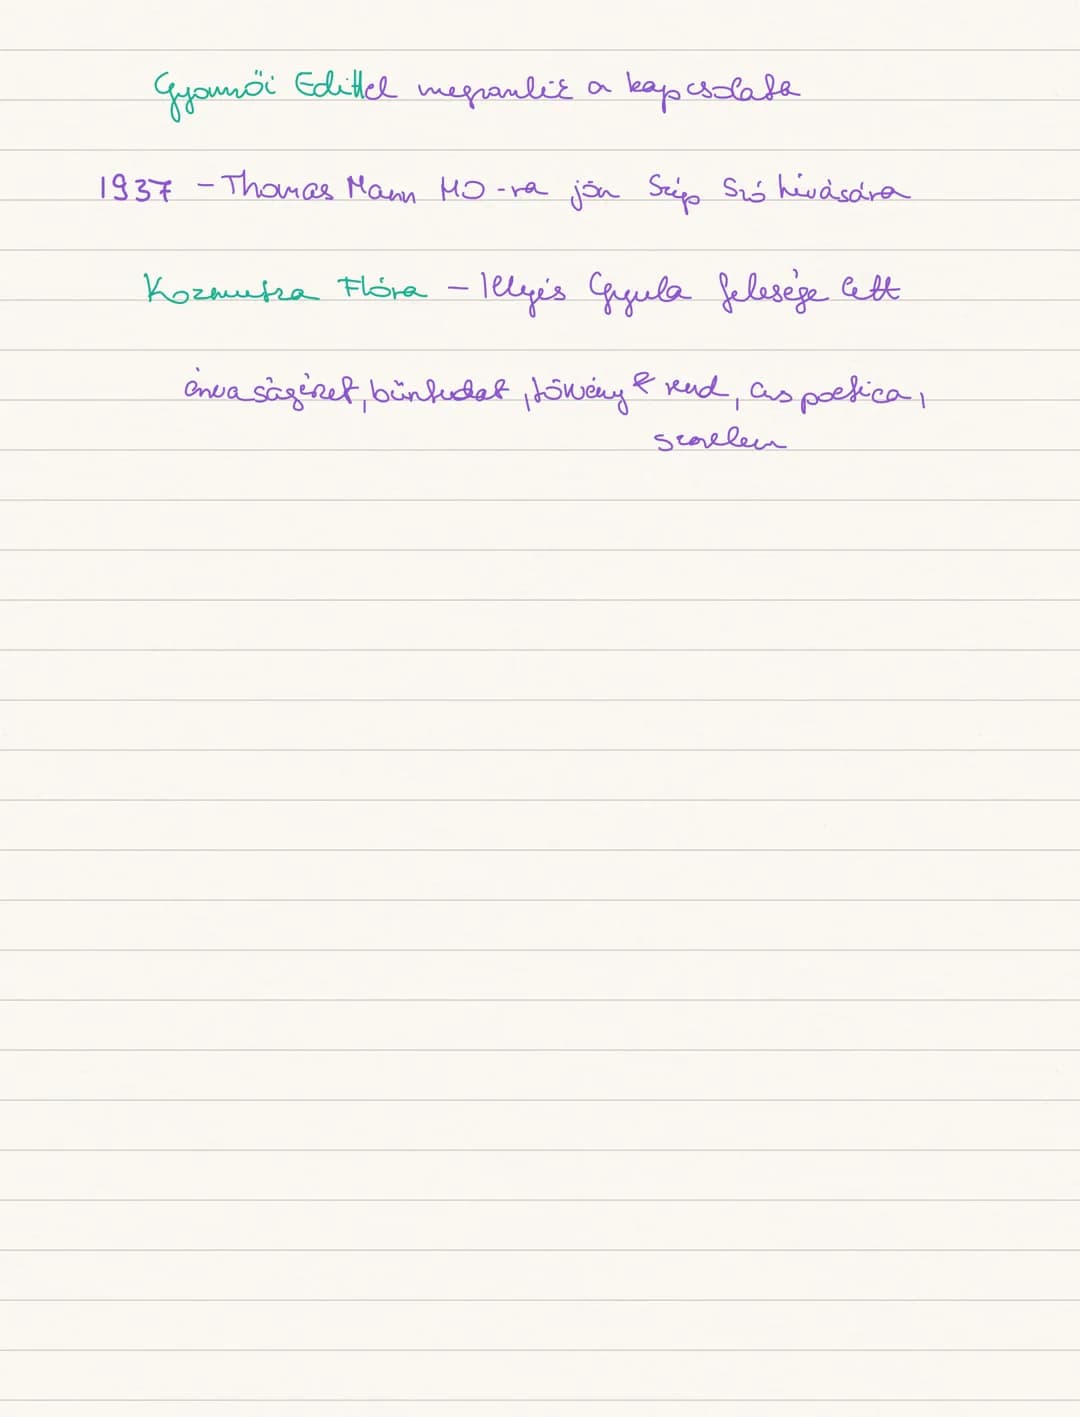 Gyömrői Edittel megromlik a kapcsolata
1937 - Thomas Mann MO-ra jön Szép Szó hívására
Kozmutza Flóra - Illyés Gyula felesége lett
árvaságérzet, bűntudat, törvény & rend, ars poetica,
szerelem